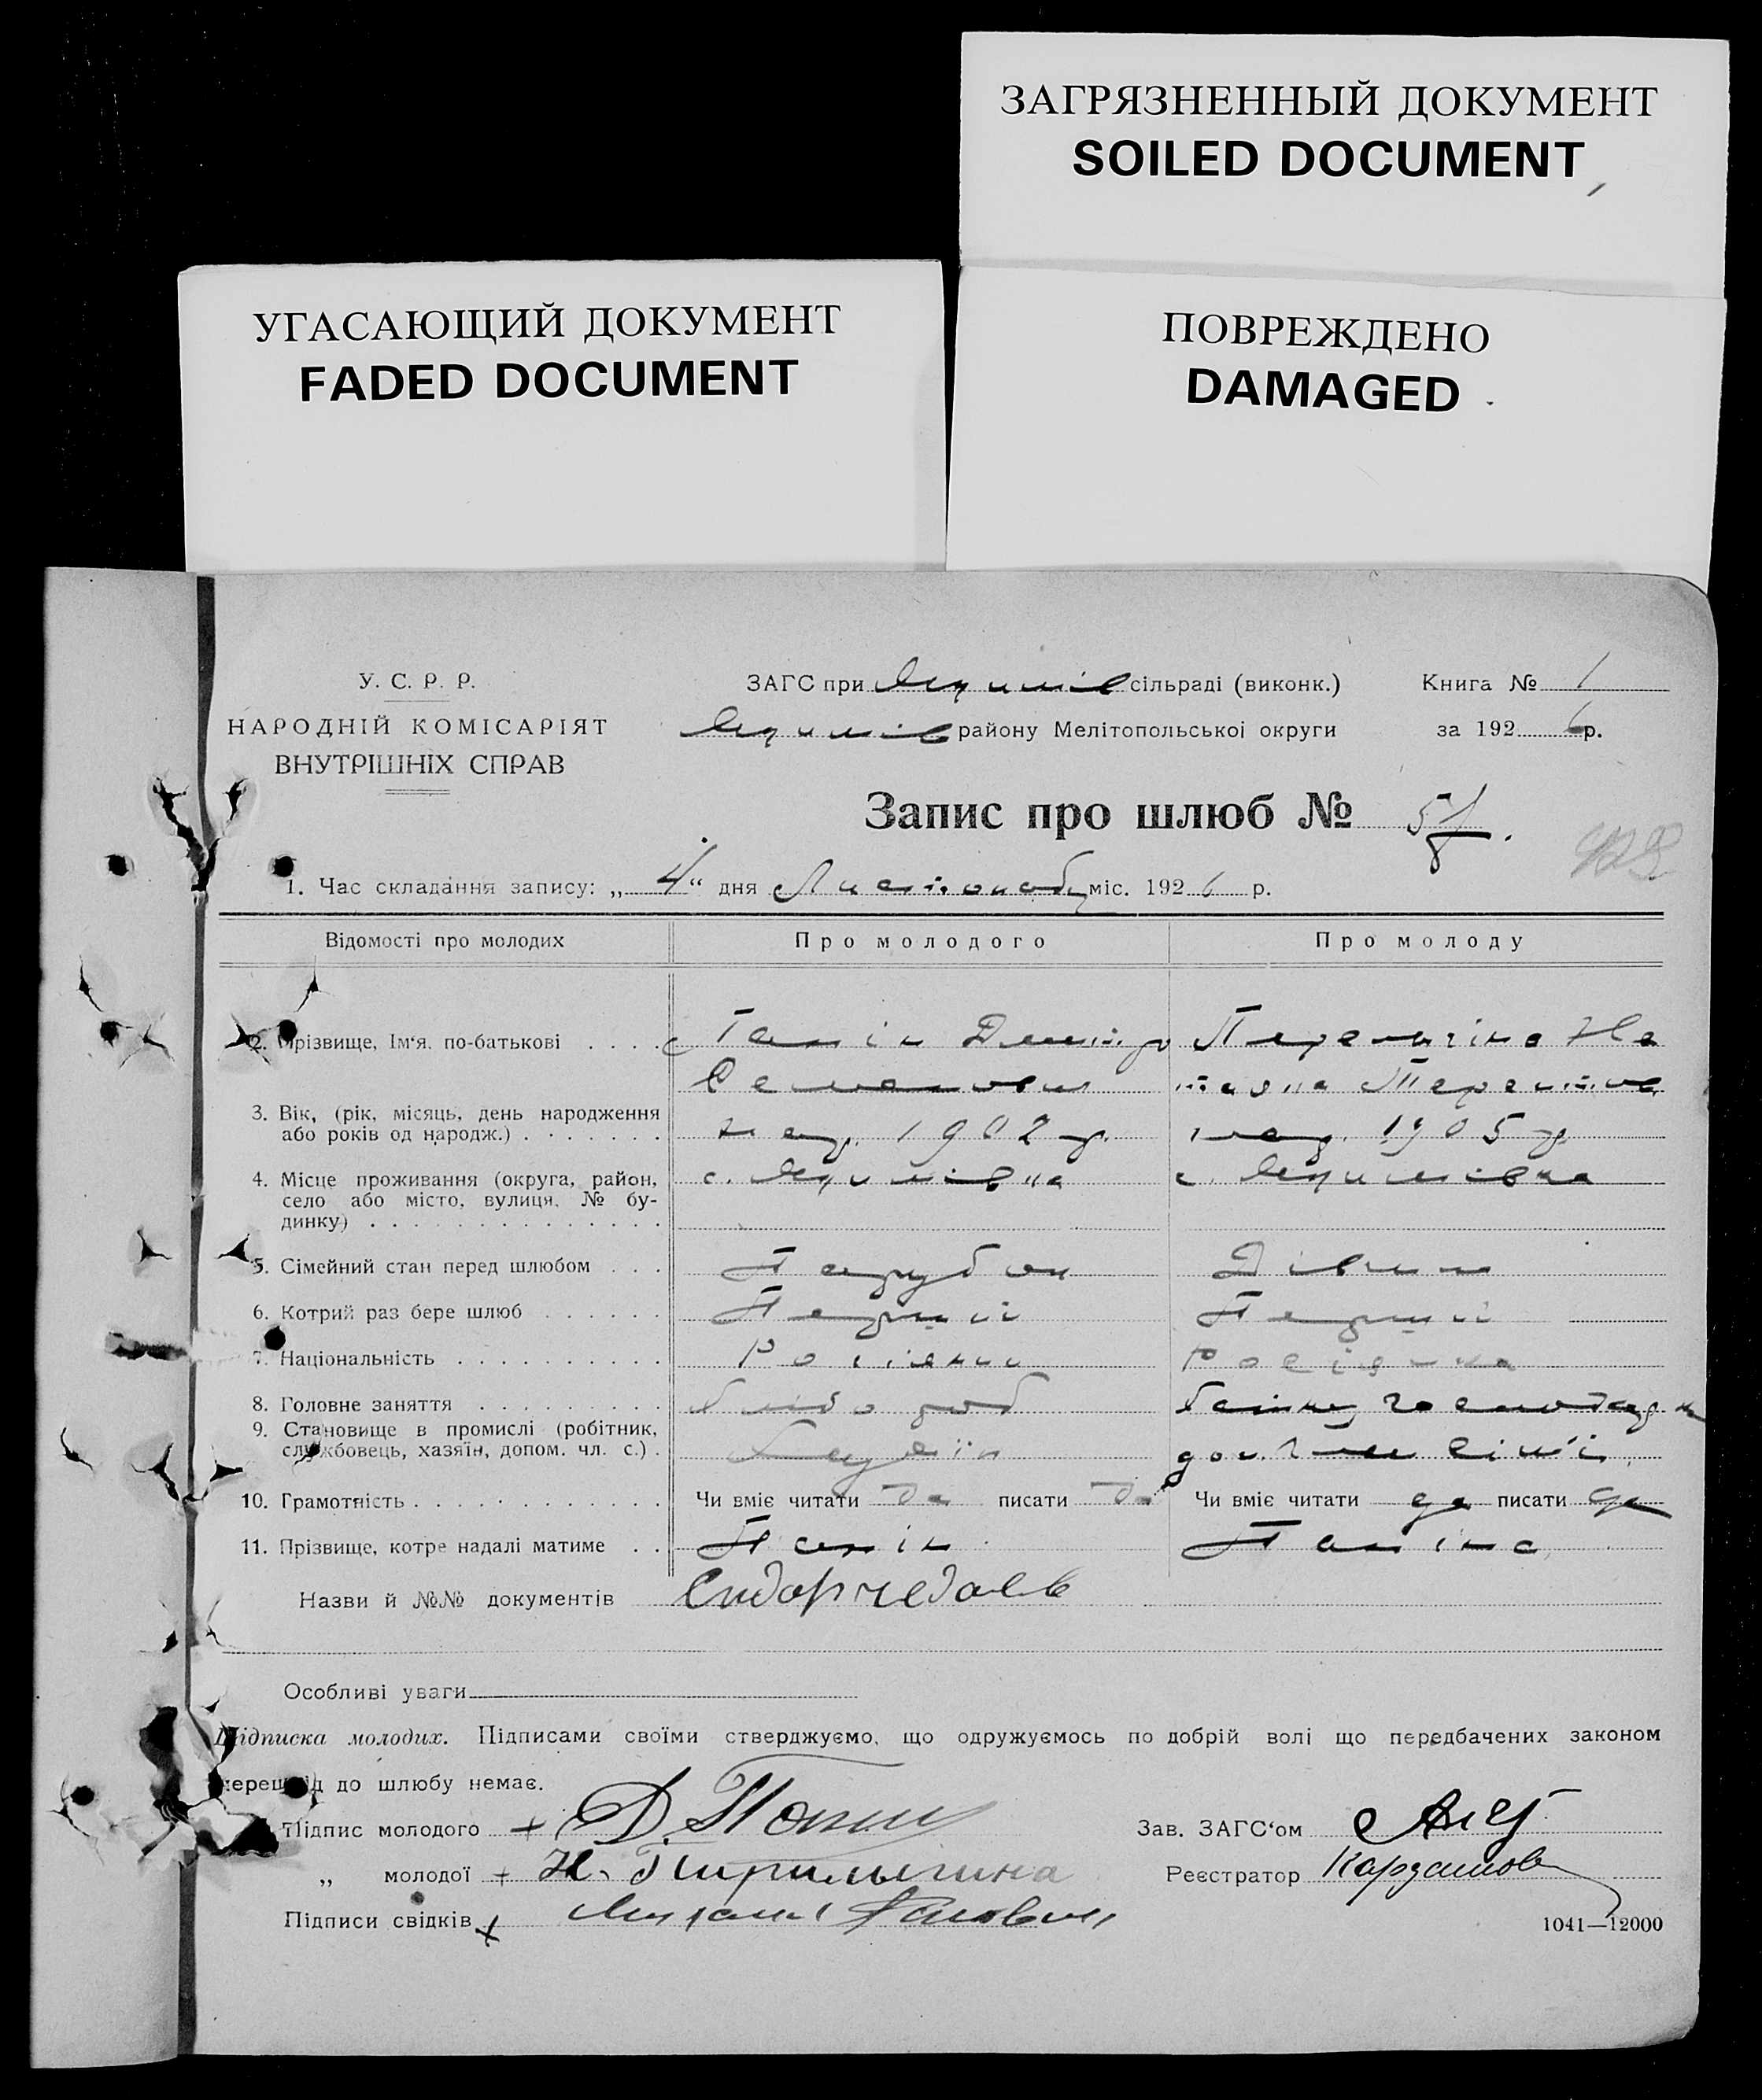 ЗАГРЯЗНЕННЫЙ ДОКУМЕНТ
SOILED DOCUMENT
УГАСАЮЩИЙ ДОКУМЕНТ
FADED DOCUMENT
ПОВРЕЖДЕНО
DAMAGED
У. С. Р. Р.
НАРОДНІЙ КОМІСАРІЯТ
ВНУТРІШНІХ СПРАВ
ЗАГС при Якимів сільраді (виконк.)
Якимів району Мелітопольської округи
Книга № 1
за 1926 р.
Запис про шлюб №
1. Час складання запису: „4“ дня Листопаду міс. 1926 р.
Відомості про молодих Про молодого Про молоду
2. Прізвище, Ім‘я, по-батькові . . . . Панін Дмитро
Семенович
3. Вік, (рік, місяць, день народження
або років од народж.) . . . . . . . нар. 1902 р. нар. 1905 р.
4. Місце проживання (округа, район, с. Якимівка с. Якимівка
село або місто, вулиця, № бу-
динку) . . . . . . . . . . . . . .
5. Сімейний стан перед шлюбом . . . Парубок Дівиця
6. Котрий раз бере шлюб . . . . . . Перший Перший
7. Національність . . . . . . . . . . Росіянин Росіянка
8. Головне заняття . . . . . . . . . хлібороб
9. Становище в промислі (робітник,
службовець, хазяїн, допом. чл. с.) . Хазяїн доп. член сім'ї
10. Грамотність . . . . . . . . . . . . Чи вміє читати да писати да Чи вміє читати да писати да
11. Прізвище, котре надалі матиме . . Панін Паніна
Назви й №№ документів
Особливі уваги
Підписка молодих. Підписами своїми стверджуємо, що одружуємось по добрій волі що передбачених законом
перешкід до шлюбу немає.
Підпис молодого + Д. Панин
Зав. ЗАГС‘ом
„ молодої + Н.
Реєстратор
Підписи свідків х
1041—12000